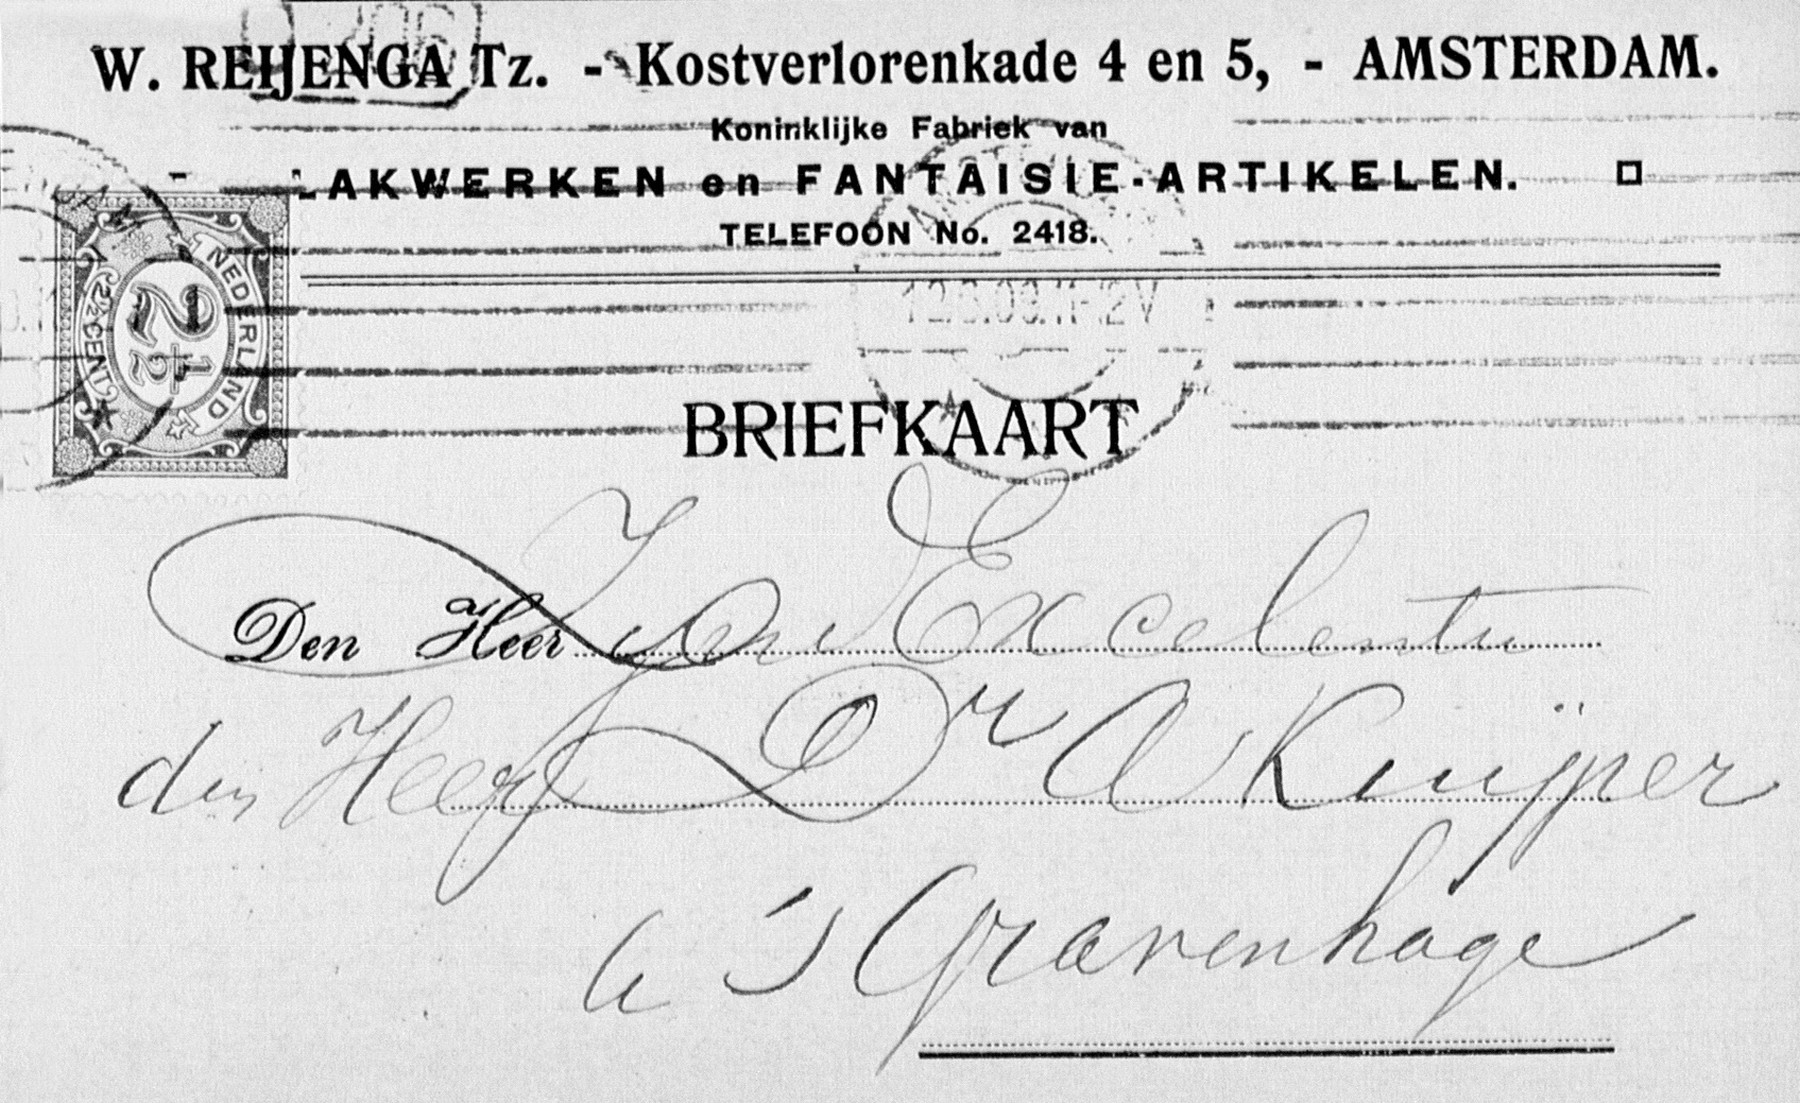 W. REIJENGA Tz. - Kostverlorenkade 4 en 5, - AMSTERDAM.
Koninklijke Fabriek van
LAKWERKEN en FANTAISIE-ARTIKELEN.
TELEFOON No. 2418.
NEDERLAND
2½
2½ CENT
BRIEFKAART
Den Heer Zijn Excelentie
den Heer Dr A Kuijper
's Gravenhage